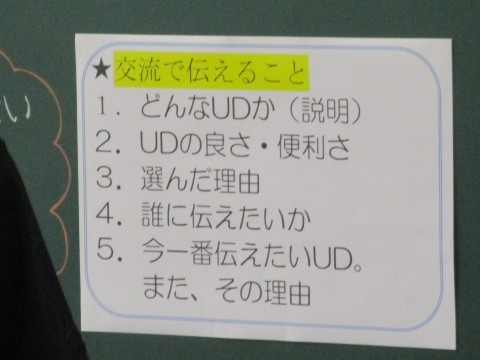 ★交流で伝えること
1．どんなUDか（説明）
2．UDの良さ・便利さ
3．選んだ理由
4．誰に伝えたいか
5．今一番伝えたいUD。
また、その理由
い